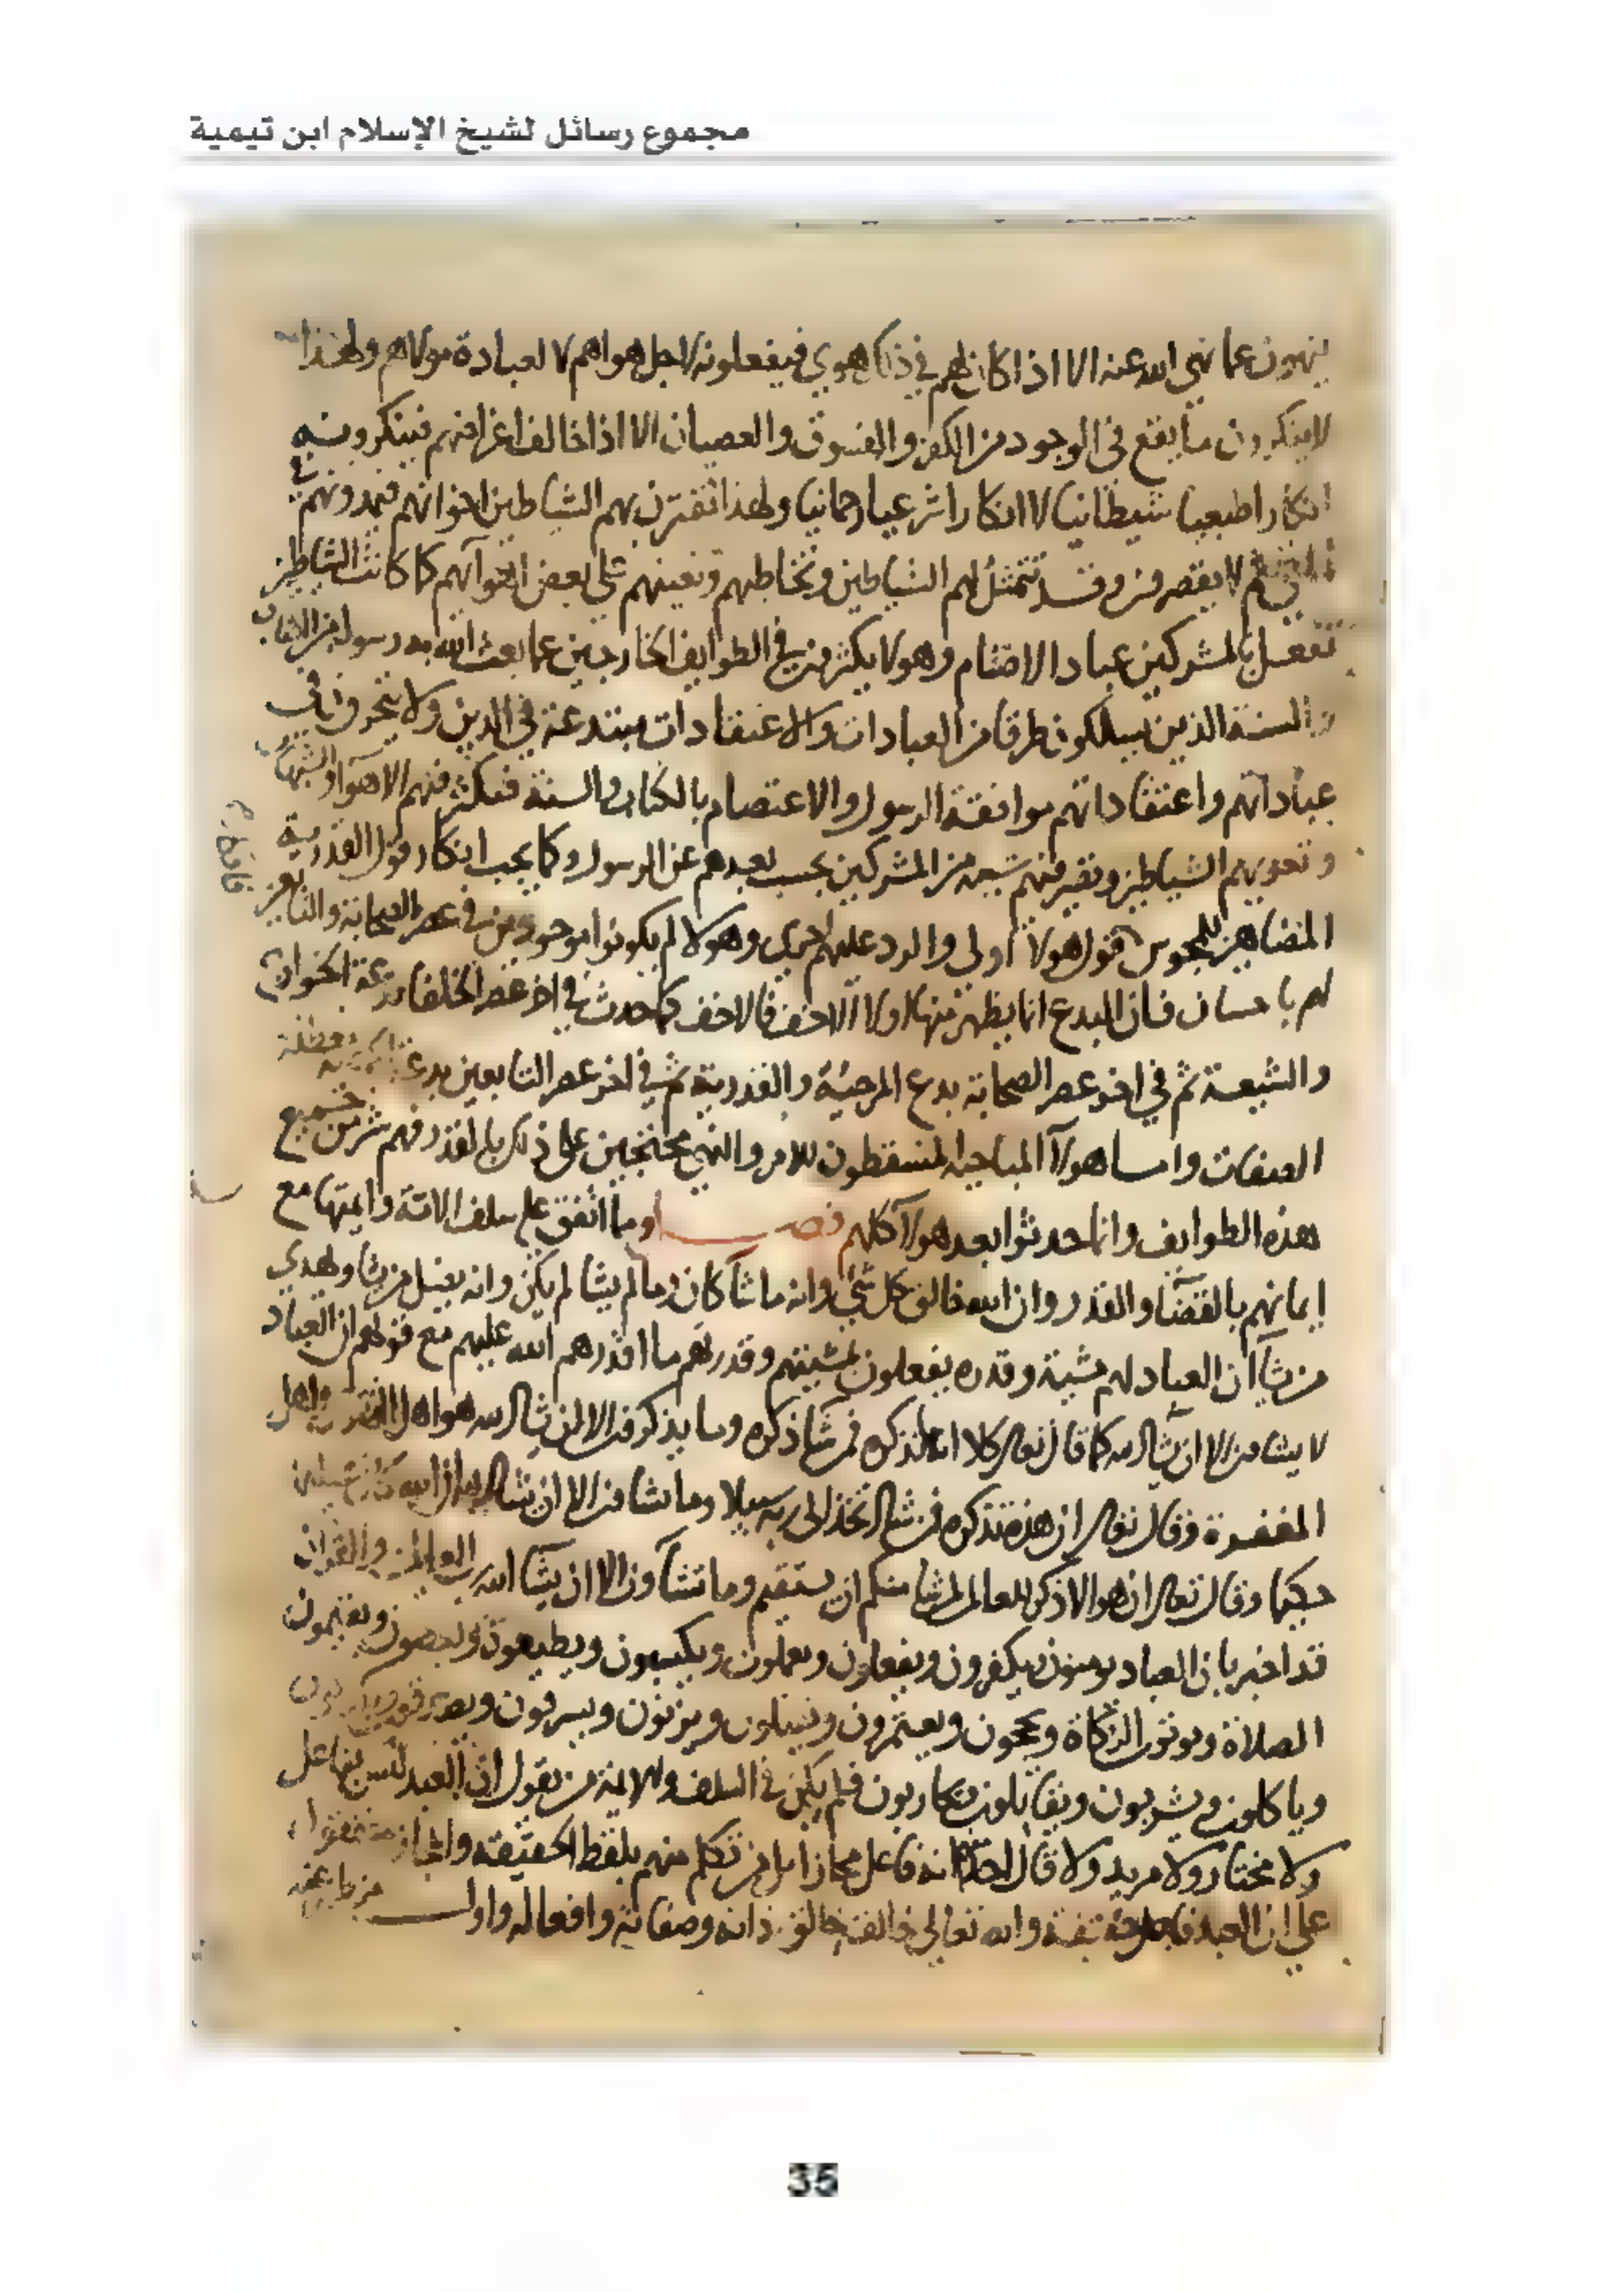 مجموع رسائل لشيخ الإسلام ابن تيمية
ينهون عما نهى الله عنه الا اذا كان لهم في ذلك هوي فيفعلونه لاجل هواهم لا لعبادة مولاهم ولهذا
لا ينكرون ما يقع في الوجود من الكفر والفسوق والعصيان الا اذا خالف اغراضهم فينكرونه
انكارا طبعيا شيطانيا لا انكارا شرعيا رحمانيا ولهذا تقترن بهم الشياطين اخوانهم فيمدونهم في
الغي ثم لا يقصرون وقد تتمثل لهم الشياطين وتخاطبهم وتعينهم على بعض اهوآيهم كما كانت الشياطين
تفعل بالمشركين عباد الاصنام وهولا يكثرون في الطوايف الخارجين عما بعث الله به رسوله من الكتاب
والسنة الذين يسلكون طرقا من العبادات والاعتقادات مبتدعة في الدين ولا يتحرون في
عباداتهم واعتقاداتهم موافقة الرسول والاعتصام بالكتاب والسنة فتكثر فيهم الاهوآ والشبهات
وتغويهم الشياطين وتصير فيهم شبه من المشركين بحسب بعدهم عن الرسول وكما يجب انكار قول القدرية
المضاهين للمجوس فقول هولا اولى والرد عليهم احرى وهولا لم يكونوا موجودين في عصر الصحابة والتابعين
لهم باحسان فان البدع انما يظهر منها اولا الاخف فالاخف كما حدث في اخر عصر الخلفا بدعة الخوارج
والشيعة ثم في اخر عصر الصحابة بدع المرجئة والقدرية ثم في اخر عصر التابعين بدعة معطلة
الصفات واما هولآ المباحية المسقطون للامر والنهي محتجين على ذلك بالقدر فهم شر من جميع
هذه الطوايف وانما حدثوا بعد هولآ كلهم فصــل ومما اتفق عليه سلف الامة وايمتها مع
ايمانهم بالقضا والقدر وان الله خالق كل شي وانه ما شآ كان وما لم يشا لم يكن وانه يضل من يشا ويهدي
من يشآ ان العباد لهم مشية وقدره يفعلون بمشيتهم وقدرتهم ما اقدرهم الله عليه مع قولهم ان العباد
لا يشاون الا ان يشا الله كما قال تعالى كلا انه تذكره فمن شا ذكره وما يذكرون الا ان يشا الله هو اهل التقوى واهل
المغفرة وقال تعالى ان هذه تذكره فمن شا اتخذ الى ربه سبيلا وما تشاون الا ان يشا الله ان الله كان عليما
حكيما وقال تعالى ان هو الا ذكر للعالمين لمن شا منكم ان يستقيم وما تشآون الا ان يشآ الله رب العالمين والقران
قد اخبر بان العباد يومنون ويكفرون ويفعلون ويعملون ويكسبون ويطيعون ويعصون ويقيمون
الصلاة ويوتون الزكاة ويحجون ويعتمرون ويقتلون ويزنون ويسرقون ويصدقون ويكذبون
وياكلون ويشربون ويقاتلون ويحاربون فلم يكن في السلف والايمة من يقول ان العبد ليس بفاعل
ولا مختار ولا مريد ولا قال احد منهم انه فاعل مجازا بل من تكلم منهم بلفظ الحقيقه والمجاز متفقون
على ان العبد فاعل حقيقة والله تعالى خالقه خالق ذاته وصفاته وافعاله واول من
35